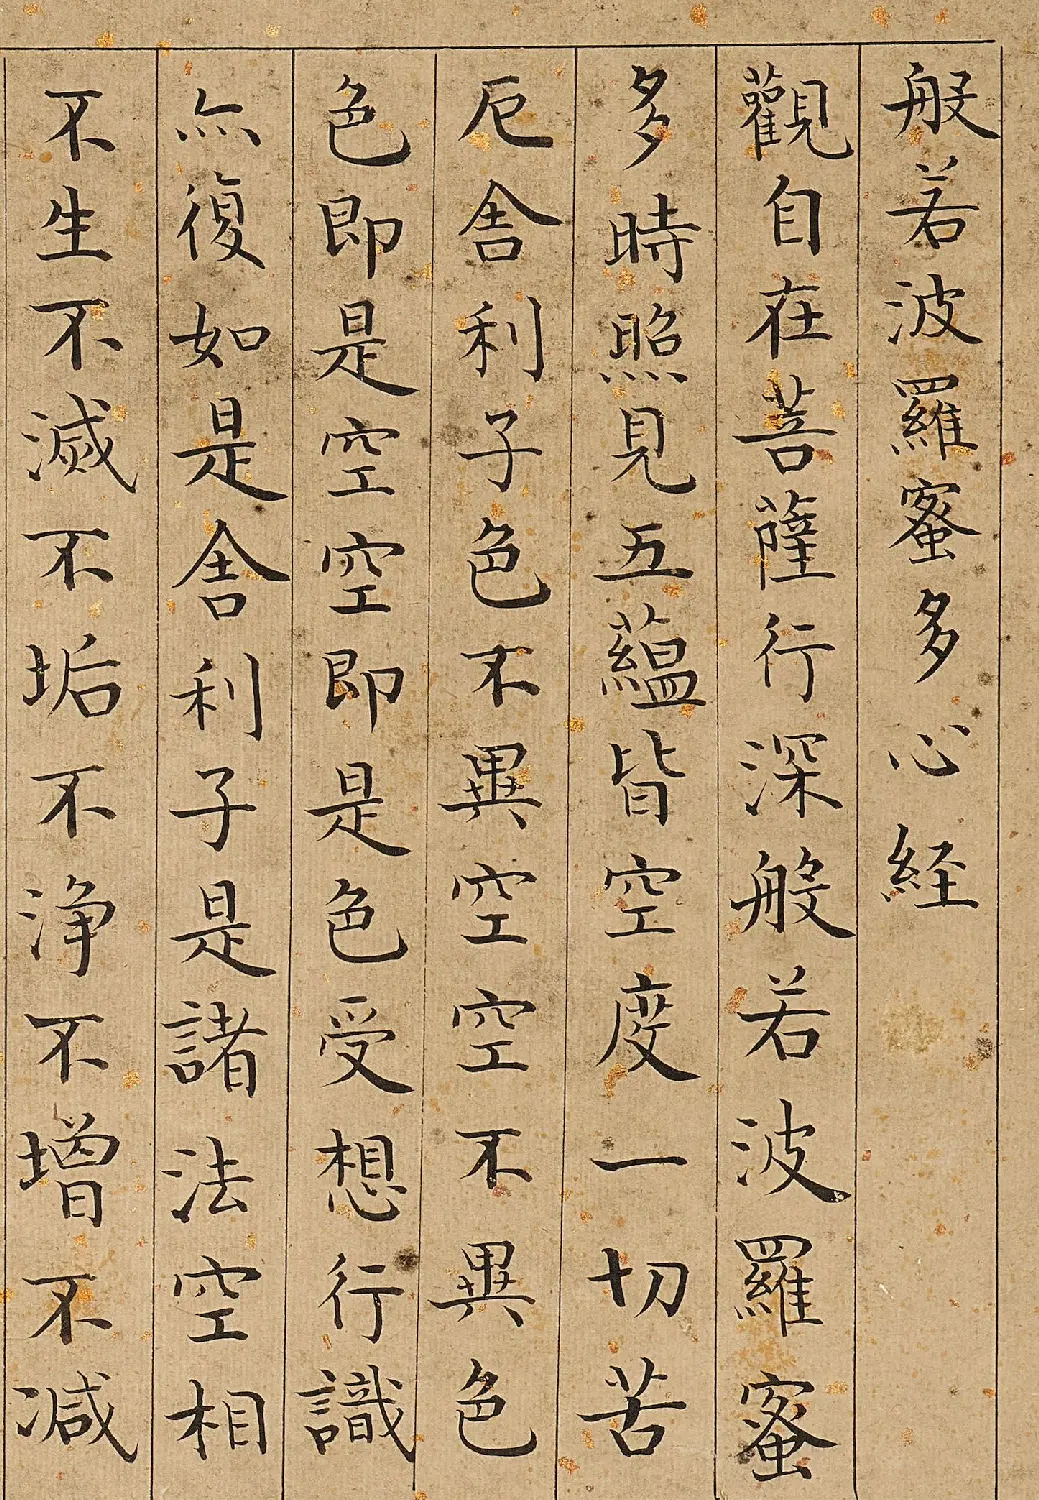 般若波羅蜜多心経
觀自在菩薩行深般若波羅蜜
多時照見五蘊皆空度一切苦
厄舎利子色不異空空不異色
色即是空空即是色受想行識
亦復如是舎利子是諸法空相
不生不滅不垢不浄不增不減